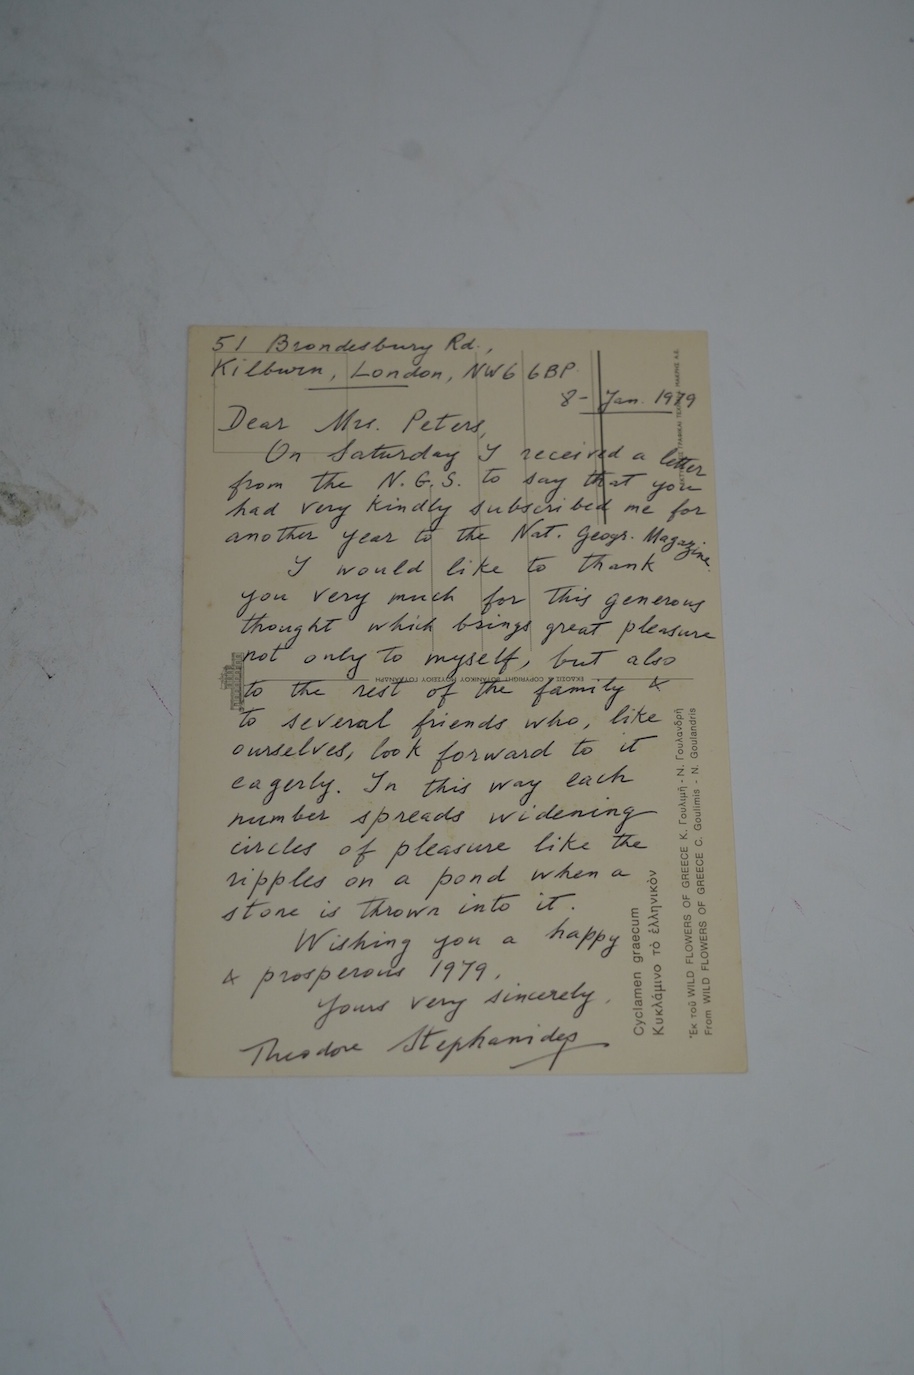 51 Brondesbury Rd.,
Kilburn, London, NW6 6BP
8 - Jan. 1979
Dear Mrs. Peters,
On Saturday I received a letter
from the N.G.S. to say that you
had very kindly subscribed me for
another year to the Nat. Geogr. Magazine.
I would like to thank
you very much for this generous
thought which brings great pleasure
not only to myself, but also
to the rest of the family &
to several friends who, like
ourselves, look forward to it
eagerly. In this way each
number spreads widening
circles of pleasure like the
ripples on a pond when a
stone is thrown into it.
Wishing you a happy
& prosperous 1979.
Yours very sincerely,
Theodore Stephanides
Cyclamen graecum
Κυκλάμινο τὸ ἑλληνικὸν
Ἐκ τοῦ WILD FLOWERS OF GREECE Κ. Γουλιμῆ - Ν. Γουλανδρῆ
From WILD FLOWERS OF GREECE C. Goulimis - N. Goulandris
ΕΚΔΟΣΙΣ COPYRIGHT ΒΟΤΑΝΙΚΟΥ ΜΟΥΣΕΙΟΥ ΓΟΥΛΑΝΔΡΗ